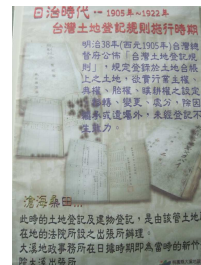 日治時代 1905年~1922年
台灣土地登記規則施行時期
明治38年(西元1905年)台灣總
督府公佈「台灣土地登記規
則」,規定登錄於土地台帳
上之土地,欲實行業主權、
典權、胎權、贌耕權之設定
、移轉、變更、處分、除因
繼承或遺囑外,未經登記不
生效力
滄海桑田
此時的土地登記及建物登記,是由該管土地
在地的法院所設之出張所辦理。
大溪地政事務所在日據時期即為當時的新竹
院大溪出張所